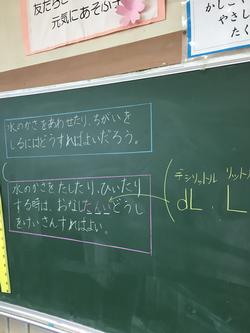 友だちと
元気にあそぶ子
かしこく
やさしく
たく
水のかさをあわせたり、ちがいを
しるにはどうすればよいだろう。
水のかさをたしたり、ひいたり
する時は、おなじたんいどうし
をけいさんすればよい。
デシリットル リットル
dL、L